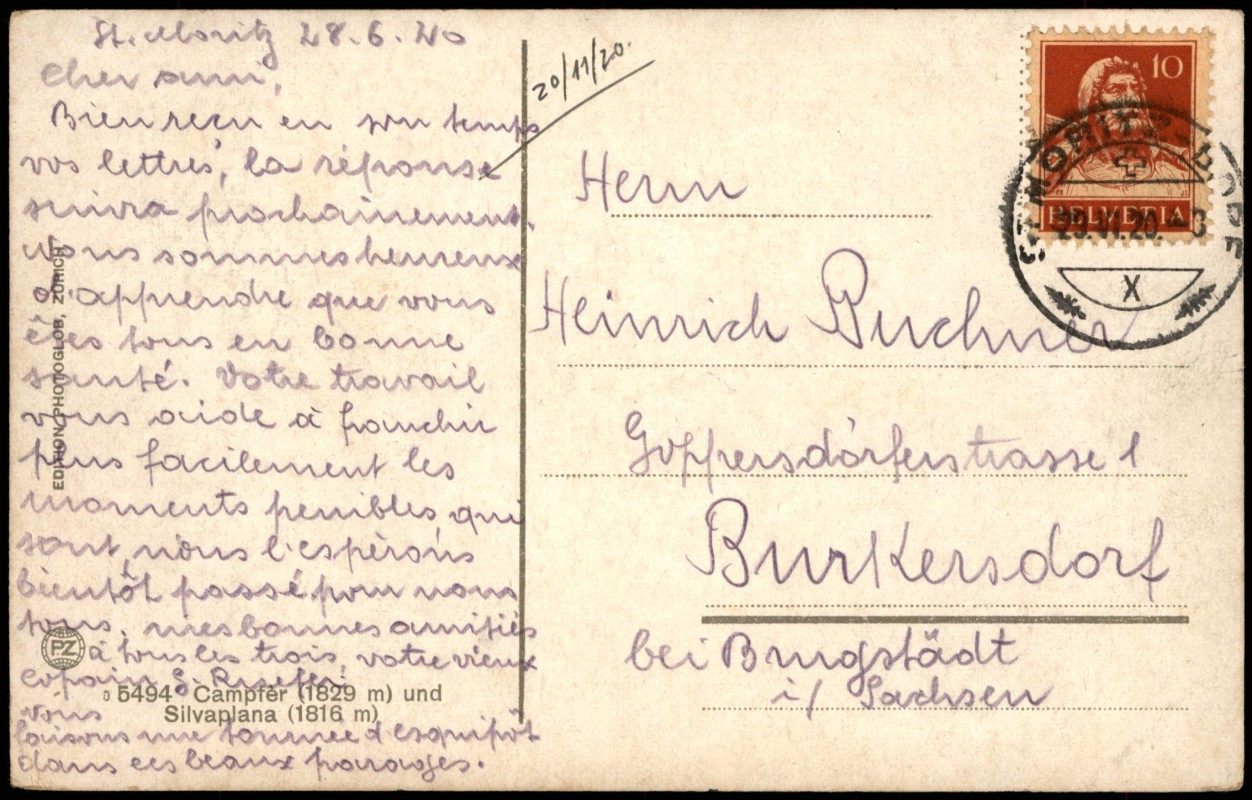 St. Moritz 28.6.20
Cher ami,
Bien reçu en son temps
vos lettres, la réponse
suivra prochainement.
Nous sommes heureux
d'apprendre que vous
êtes tous en bonne
santé. Votre travail
vous aide à franchir
plus facilement les
moments penibles, qui
sont, nous l'espérons
bientôt passé pour nous
tous. mes bonnes amitiés
à tous les trois, votre vieux
copain
vous
faisons une tournée d
dans ces beaux parages.
EDITION PHOTOGLOB, ZÜRICH
PZ
5494 Campfèr (1829 m) und
Silvaplana (1816 m)
20/11/20.
10
HELVETIA
ST. MORITZ-DORF
29.VI.20.-3
X
Herrn
Heinrich Puchner
Goppersdörferstrasse 1
Burkersdorf
bei Burgstädt
i/ Sachsen